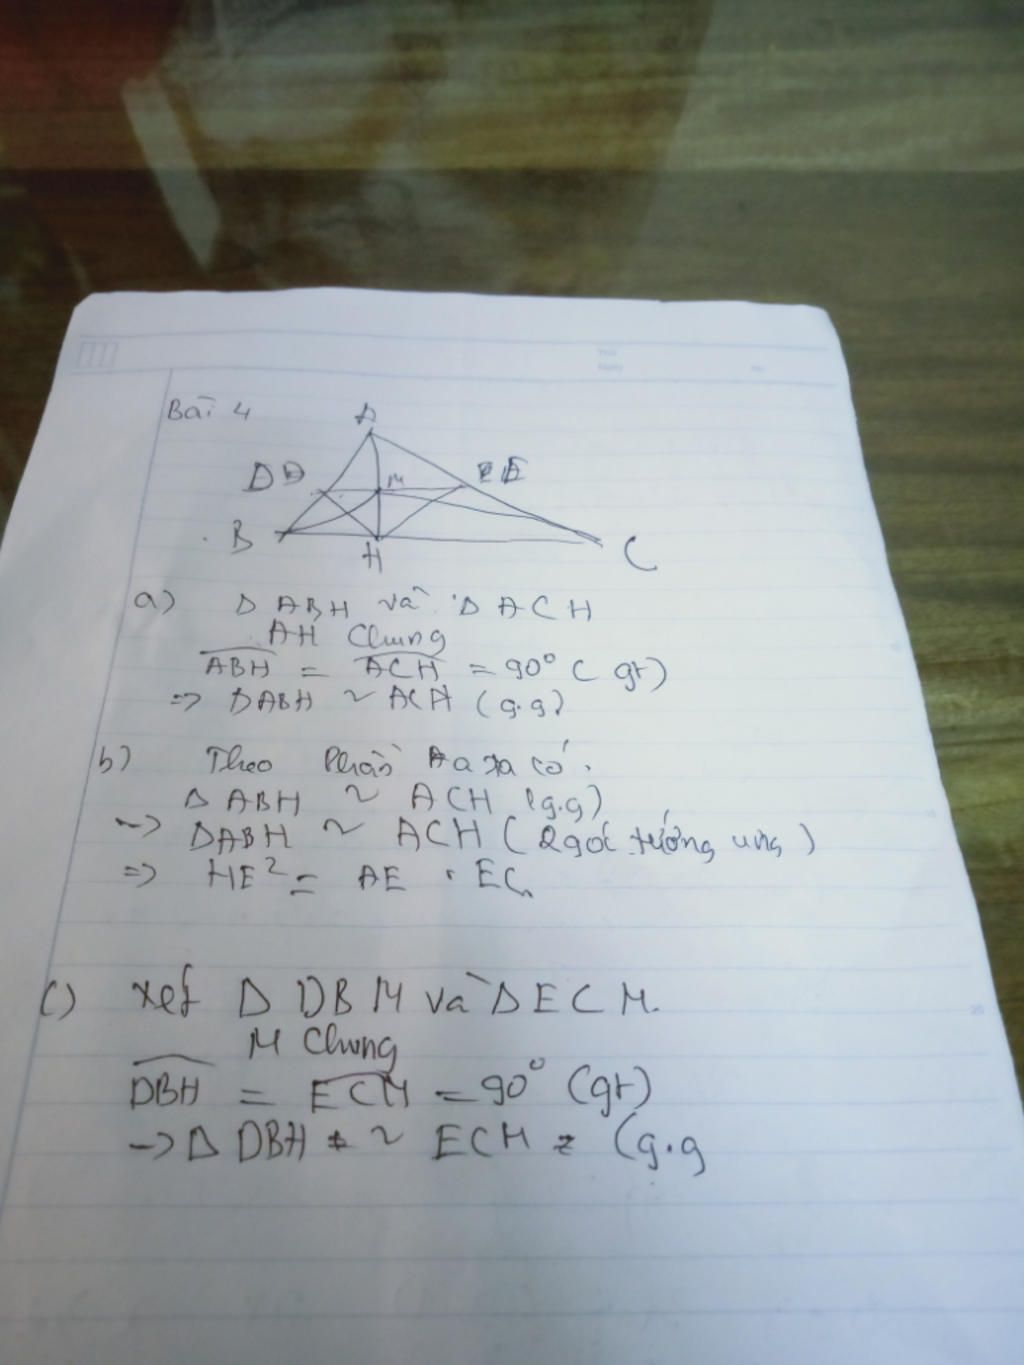 Bài 4
A
D D
M
E E
B
H
C
a) Δ ABH và Δ ACH
AH Chung
ABH = ACH = 90° ( gt)
=> ΔABH ~ ACH (g.g)
b) Theo Phần a ta có.
Δ ABH ~ ACH (g.g)
-> ΔABH ~ ACH ( 2 góc tướng ưng )
=> HE² = AE . EC
c) xet Δ DBM và Δ ECM.
M Chung
DBH = ECM = 90° (gt)
-> Δ DBH ~ ECM (g.g